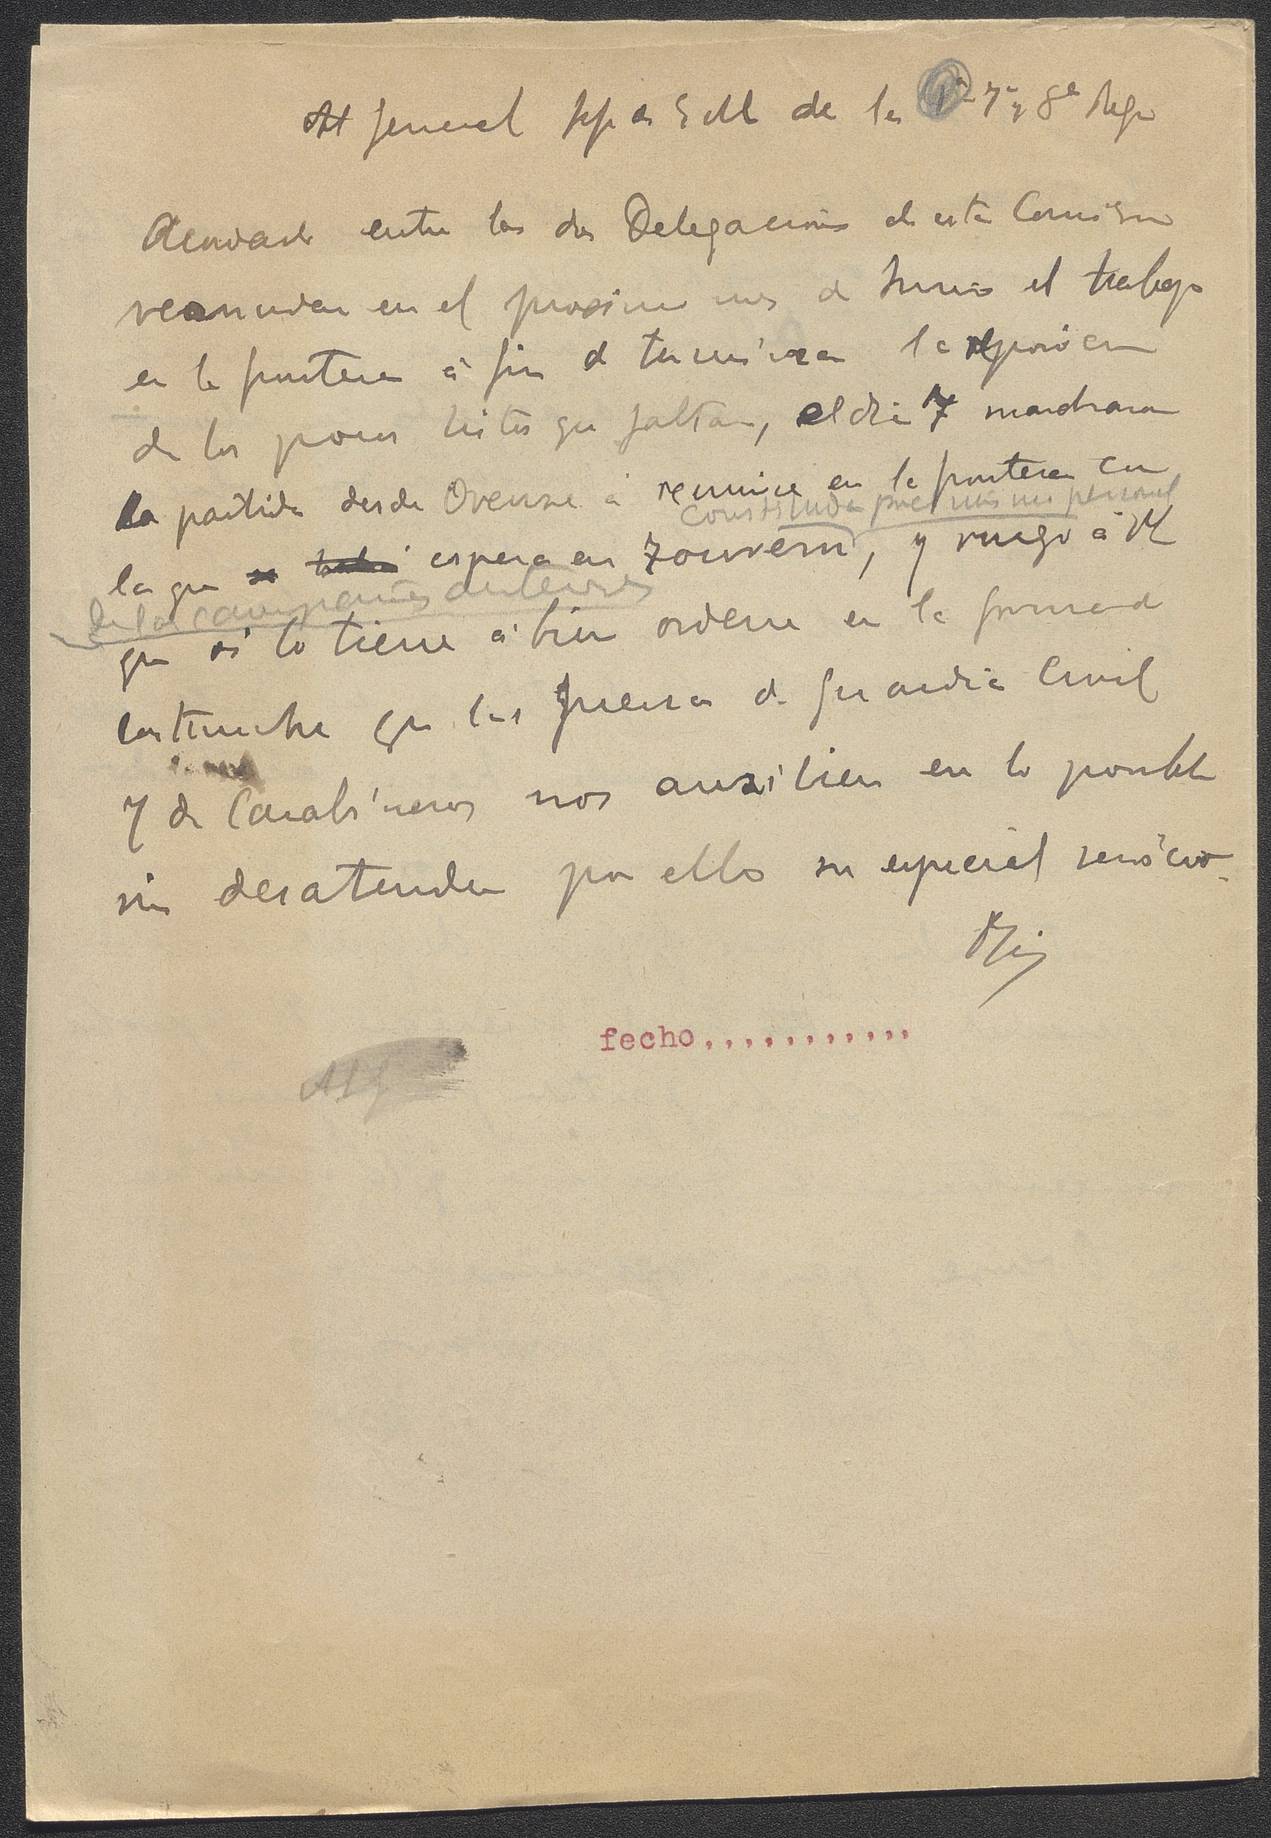 Al General Jefe de E M de la 1ª 7ª y 8ª Regn
Acordado entre las dos Delegaciones de esta Comision
reanudar en el proximo mes de Junio el trabajo
en la frontera á fin de terminar la reposicion
de los pocos hitos que faltan, el dia 7 marchara
la partida desde Orense á reunirse en la frontera con
constituida por el mismo personal
la que espera en Lourem, y ruego á VE
de las campañas anteriores
que si lo tiene á bien ordene en la forma de
costumbre que las fuerzas de Guardia Civil
y de Carabineros nos auxilien en lo posible
sin desatender por ello su especial servicio.
fecho,,,,,,,,,,,